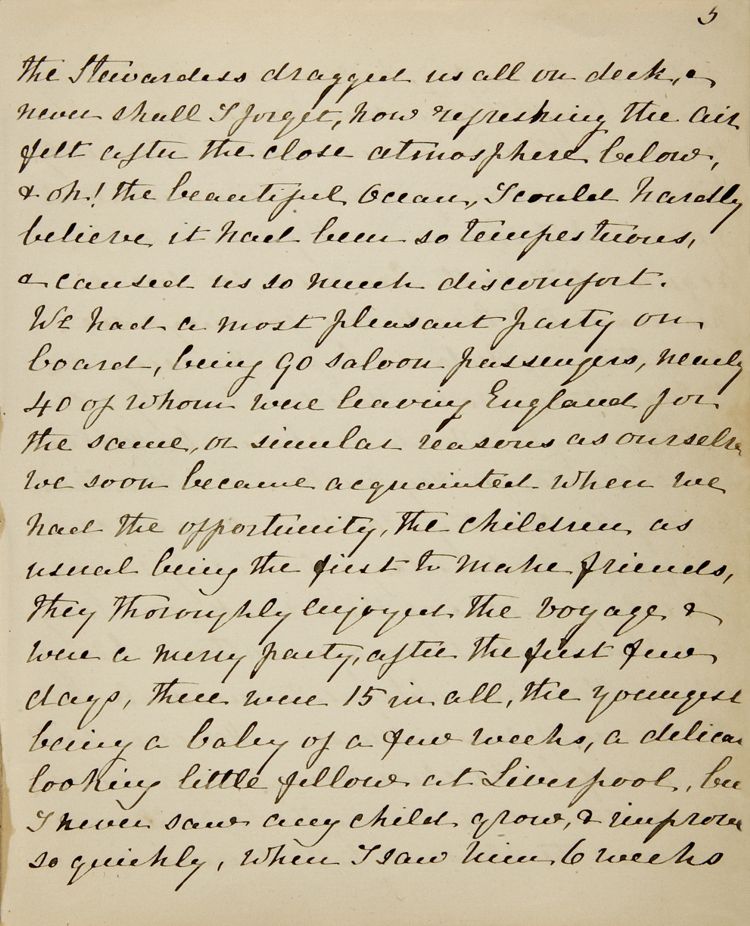 5
the Stewardess dragged us all on deck, &
never shall I forget, how refreshing the air
felt after the close atmosphere below,
& oh! the beautiful Ocean, I could hardly
believe it had been so tempestuous,
& caused us so much discomfort.
We had a most pleasant party on
board, being 90 saloon passengers, nearly
40 of whom were leaving England for
the same, or similar reasons as ourselve
we soon became acquainted when we
had the opportunity, the children as
usual being the first to make friends,
they thoroughly enjoyed the voyage &
were a merry party, after the first few
days, there were 15 in all, the youngest
being a baby of a few weeks, a delica
looking little fellow at Liverpool, bu
I never saw any child grow, & improve
so quickly, when I saw him 6 weeks